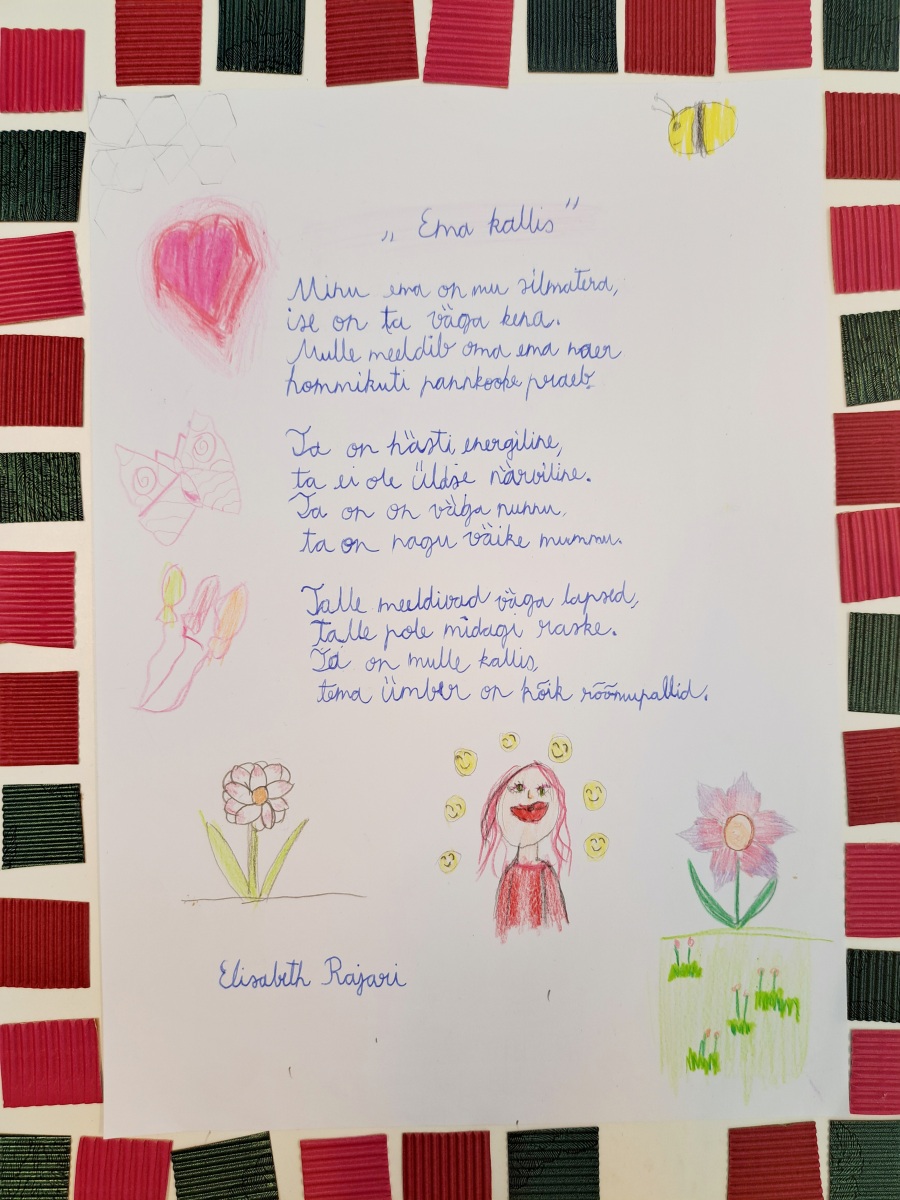 „Ema kallis”
Minu ema on mu silmatera,
ise on ta väga kena.
Mulle meeldib oma ema naer
hommikuti pannkooke praeb.
Ta on hästi energiline,
ta ei ole üldse närviline.
Ta on on väga nunnu,
ta on nagu väike mummu.
Talle meeldivad väga lapsed,
talle pole midagi raske.
Ta on mulle kallis,
tema ümber on kõik rõõmupallid.
Elisabeth Rajari